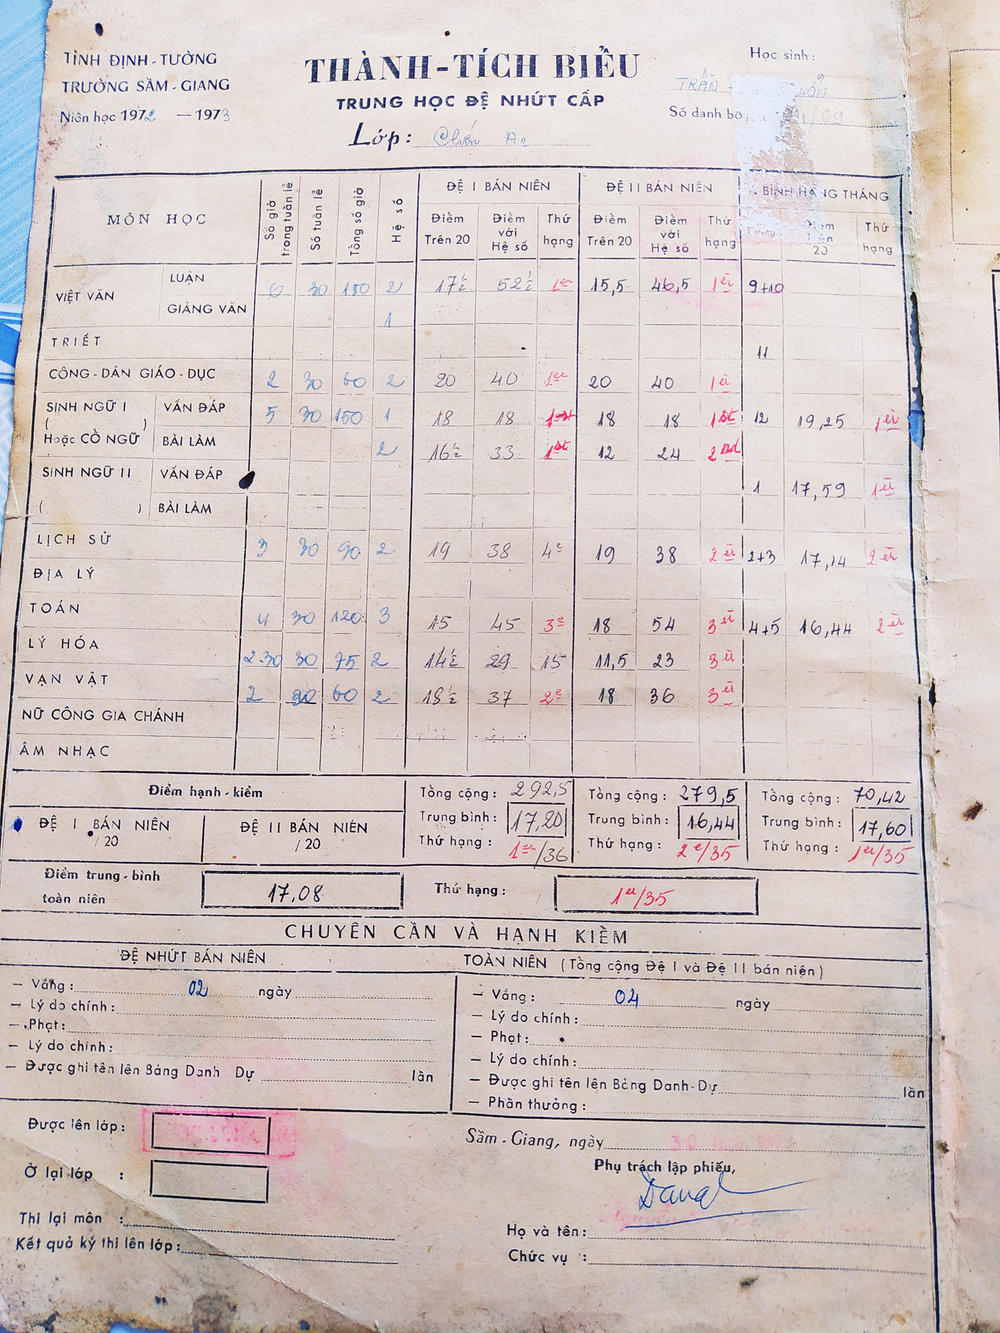 TỈNH ĐỊNH-TƯỜNG
TRƯỜNG SẦM-GIANG
Niên học 1972 — 1973
THÀNH-TÍCH BIỂU
TRUNG HỌC ĐỆ NHỨT CẤP
Lớp:
Học sinh:
TRẦN
Số danh bộ
MÔN HỌC
Số giờ trong tuần lễ
Số tuần lễ
Tổng số giờ
Hệ số
ĐỆ I BÁN NIÊN
ĐỆ II BÁN NIÊN
BÌNH HẠNG THÁNG
Điểm Trên 20
Điểm với Hệ số
Thứ hạng
Điểm Trên 20
Điểm với Hệ số
Thứ hạng
Điểm Trên 20
Thứ hạng
VIỆT VĂN
LUẬN 6 30 180 2 17½ 52½ 1er 15,5 46,5 1er 9+10
GIẢNG VĂN 1
TRIẾT 11
CÔNG-DÂN GIÁO-DỤC 2 30 60 2 20 40 1er 20 40 1er
SINH NGỮ I ( ) Hoặc CỔ NGỮ
VẤN ĐÁP 5 30 150 1 18 18 1st 18 18 1st 12 19,25 1er
BÀI LÀM 2 16½ 33 1st 12 24 2nd
SINH NGỮ II ( )
VẤN ĐÁP 1 17,59 1er
BÀI LÀM
LỊCH SỬ 3 30 90 2 19 38 4e 19 38 2è 2+3 17,14 2è
ĐỊA LÝ
TOÁN 4 30 120 3 15 45 3e 18 54 3è 4+5 16,44 2è
LÝ HÓA 2.30 30 75 2 14½ 29 15 11,5 23 3è
VẠN VẬT 2 30 60 2 18½ 37 2e 18 36 3è
NỮ CÔNG GIA CHÁNH
ÂM NHẠC
Điểm hạnh-kiểm
ĐỆ I BÁN NIÊN / 20
ĐỆ II BÁN NIÊN / 20
Tổng cộng: 292,5
Trung bình: 17,20
Thứ hạng: 1er/36
Tổng cộng: 279,5
Trung bình: 16,44
Thứ hạng: 2e/35
Tổng cộng: 70,42
Trung bình: 17,60
Thứ hạng: 1er/35
Điểm trung-bình toàn niên 17,08
Thứ hạng: 1er/35
CHUYÊN CẦN VÀ HẠNH KIỂM
ĐỆ NHỨT BÁN NIÊN
— Vắng: 02 ngày
— Lý do chính:
— Phạt:
— Lý do chính:
— Được ghi tên lên Bảng Danh Dự lần
TOÀN NIÊN (Tổng cộng Đệ I và Đệ II bán niện)
— Vắng: 04 ngày
— Lý do chính:
— Phạt:
— Lý do chính:
— Được ghi tên lện Bảng Danh-Dự lần
— Phần thưởng:
Được lên lớp:
Ở lại lớp :
Thi lại môn :
Kết quả kỳ thi lên lớp:
Sầm-Giang, ngày
Phụ trách lập phiếu,
Họ và tên:
Chức vụ :